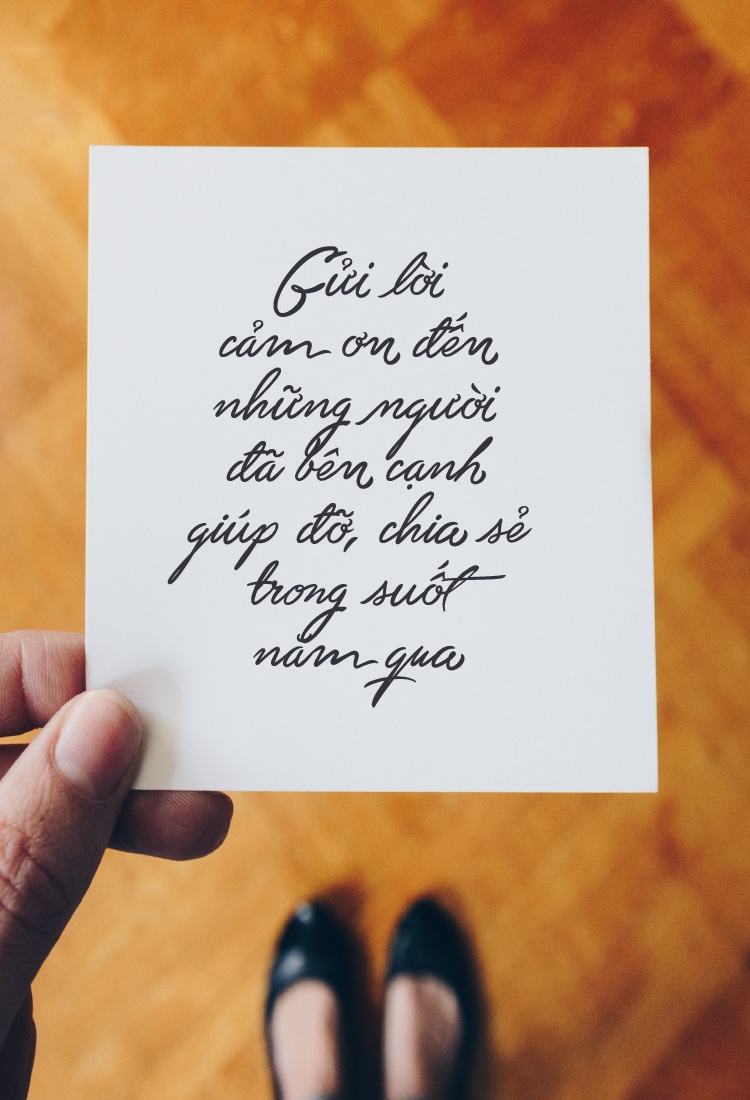 Gửi lời
cảm ơn đến
những người
đã bên cạnh
giúp đỡ, chia sẻ
trong suốt
năm qua